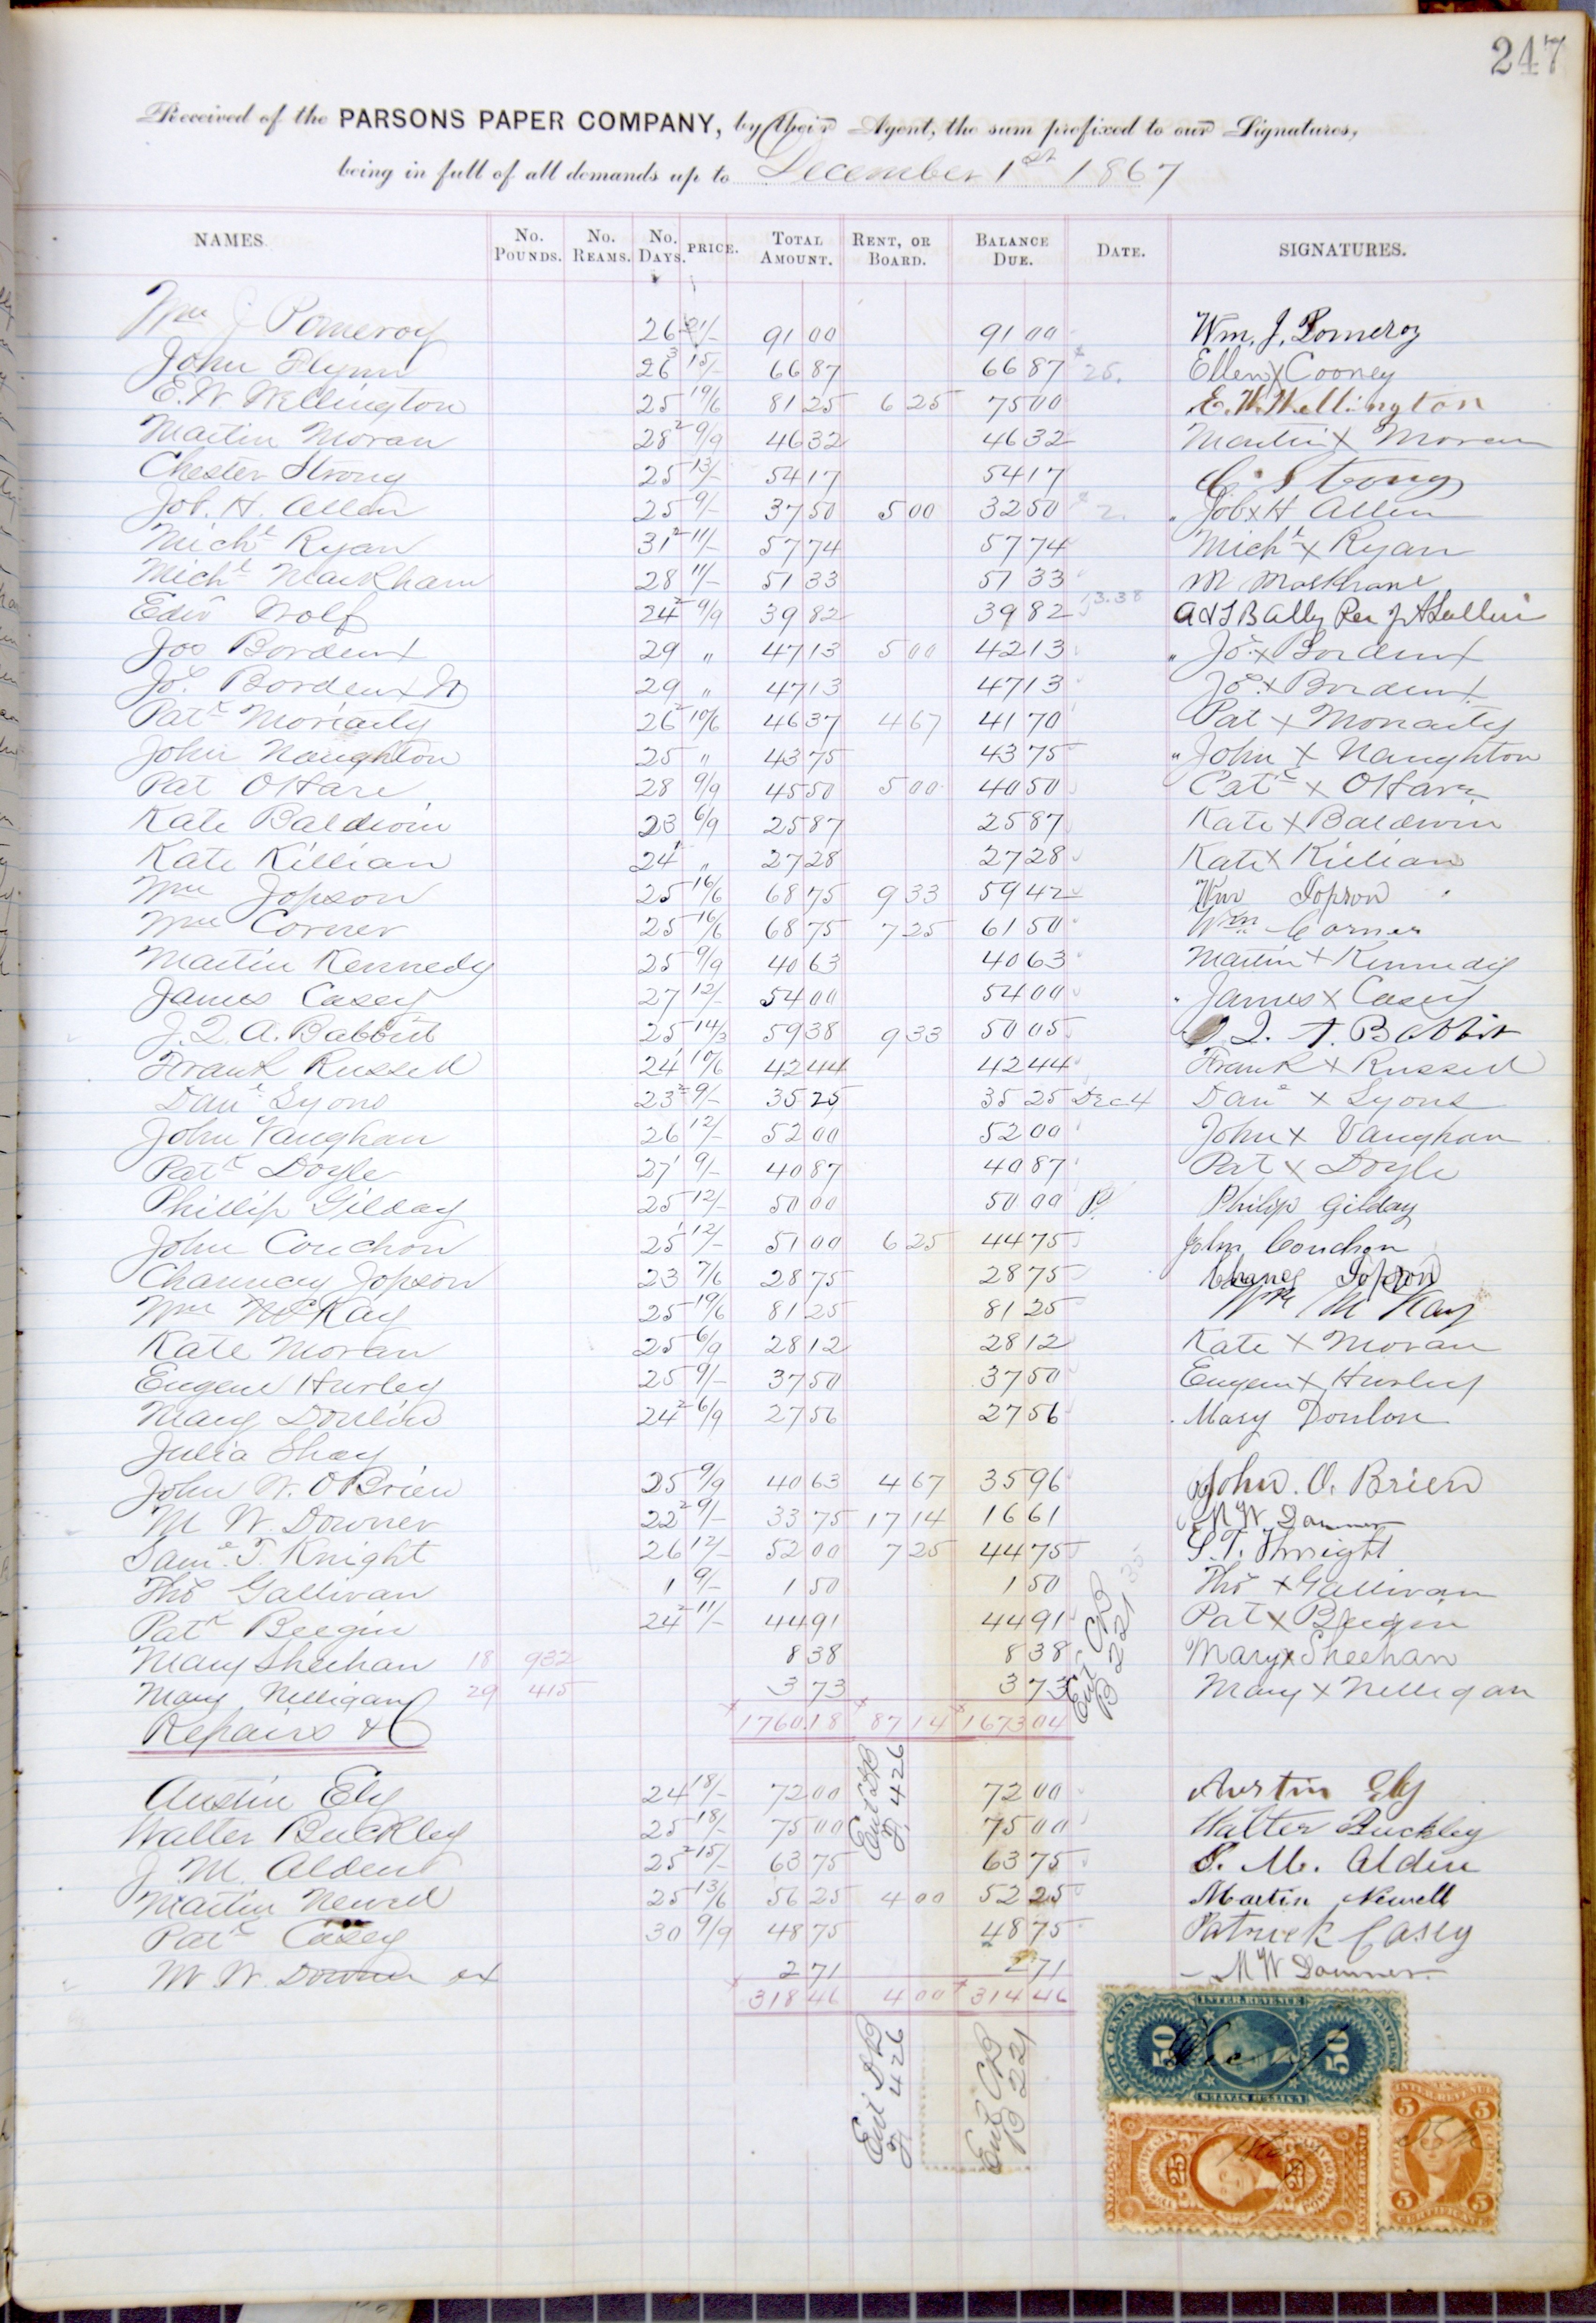 247
Received of the PARSONS PAPER COMPANY, by their Agent, the sum prefixed to our Signatures,
being in full of all demands up to December 1st 1867
NAMES. No. POUNDS. No. REAMS. No. DAYS. PRICE. TOTAL AMOUNT. RENT, OR BOARD. BALANCE DUE. DATE. SIGNATURES.
Wm J Pomeroy 26 21/- 91 00 91 00 Wm. J. Pomeroy
John Flynn 26 3 15/- 66 87 66 87 25. Ellen X Cooney
E. W. Wellington 25 19/6 81 25 6 25 75 00 E. W. Wellington
Martin Moran 28 2 9/9 46 32 46 32 Martin X Moran
Chester Strong 25 13/- 54 17 54 17 C. Strong
Job. H. Allen 25 9/- 37 50 5 00 32 50 2. Job X H Allen
Michl Ryan 31 2 11/- 57 74 57 74 Michl X Ryan
Michl Markham 28 11/- 51 33 51 33 M Markham
Edw Wolf 24 2 9/9 39 82 39 82 13.38
Jos Bordeux 29 " 47 13 5 00 42 13 " Jos X Bordeux
Jos Bordeux Jr 29 " 47 13 47 13 Jos X Bordeux
Patk Moriarty 26 2 10/6 46 37 4 67 41 70 Pat X Moriarty
John Naughton 25 " 43 75 43 75 " John X Naughton
Pat OHare 28 9/9 45 50 5 00 40 50 Patk X OHara
Kate Baldwin 23 6/9 25 87 25 87 Kate X Baldwin
Kate Killian 24 1 " 27 28 27 28 Kate X Killian
Wm Jopson 25 16/6 68 75 9 33 59 42 Wm Jopson
Wm Corner 25 16/6 68 75 7 25 61 50 Wm Corner
Martin Kennedy 25 9/9 40 63 40 63 Martin X Kennedy
James Casey 27 12/- 54 00 54 00 James X Casey
J. Q. A. Babbitt 25 14/3 59 38 9 33 50 05 J. Q. A. Babbit
Frank Russell 24 1 10/6 42 44 42 44 Frank X Russell
Danl Lyons 23 2 9/- 35 25 35 25 Dec 4 Danl X Lyons
John Vaughan 26 12/- 52 00 52 00 John X Vaughan
Patk Doyle 27 1 9/- 40 87 40 87 Pat X Doyle
Phillip Gilday 25 12/- 50 00 50 00 Philip Gilday
John Couchon 25 1 12/- 51 00 6 25 44 75 John Couchon
Chauncey Jopson 23 7/6 28 75 28 75 Jopson
Wm McKay 25 19/6 81 25 81 25 Wm McKay
Kate Moran 25 6/9 28 12 28 12 Kate X Moran
Eugene Hurley 25 9/- 37 50 37 50 Eugene X Hurley
Mary Donlin 24 2 6/9 27 56 27 56 Mary Donlon
Julia Shay
John W. OBrien 25 9/9 40 63 4 67 35 96 John. O. Brien
M W. Downer 22 2 9/- 33 75 17 14 16 61 M W. Downer
Saml T. Knight 26 12/- 52 00 7 25 44 75 S. T. Knight
Thos Gallivan 1 9/- 1 50 1 50 Thos X Gallivan
Patk Beegin 24 2 11/- 44 91 44 91 Pat X Beegin
Mary Sheehan 18 932 8 38 8 38 Mary X Sheehan
Mary Nelligan 29 415 3 73 3 73 Mary X Nelligan
Ent CB
P 221
Repairs &c 1760 18 87 14 1673 04
Ent DB
F 426
Austin Ely 24 18/- 72 00 72 00 Austin Ely
Walter Buckley 25 18/- 75 00 75 00 Walter Buckley
J. M. Alden 25 2 15/- 63 75 63 75 J. M. Alden
Martin Newell 25 13/6 56 25 4 00 52 25 Martin Newell
Patk Casey 30 9/9 48 75 48 75 Patrick Casey
M W. Downer ex 2 71 2 71 M W Downer
318 46 4 00 314 46
Ent DB
F 426
Ent CB
P 221
INTER. REVENUE
FIFTY CENTS
50 50
UNITED STATES
Dec
25 25
INTER. REVENUE
5 5
5 5
CERTIFICATE